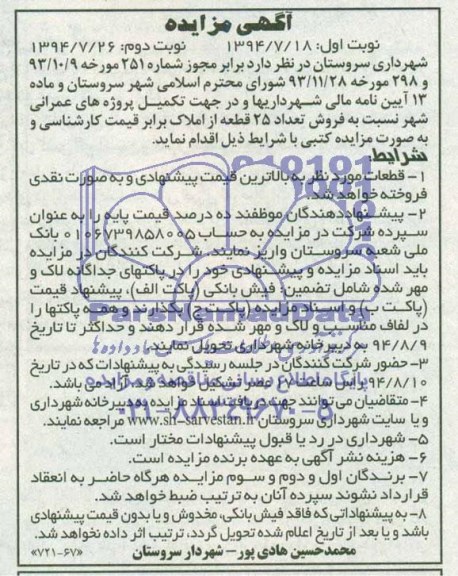 آگهی مزایده
نوبت اول: ۱۳۹۴/۷/۱۸ نوبت دوم: ۱۳۹۴/۷/۲۶
شهرداری سروستان در نظر دارد برابر مجوز شماره ۲۵۱ مورخه ۹۳/۱۰/۹
و ۲۹۸ مورخه ۹۳/۱۱/۲۸ شورای محترم اسلامی شهر سروستان و ماده
۱۳ آیین نامه مالی شهرداریها و در جهت تکمیل پروژه های عمرانی
شهر نسبت به فروش تعداد ۲۵ قطعه از املاک برابر قیمت کارشناسی و
به صورت مزایده کتبی با شرایط ذیل اقدام نماید.
شرایط:
۱- قطعات مورد نظر به بالاترین قیمت پیشنهادی و به صورت نقدی
فروخته خواهد شد.
۲- پیشنهاددهندگان موظفند ده درصد قیمت پایه را به عنوان
سپرده شرکت در مزایده به حساب ۰۱۰۶۷۳۹۸۵۸۰۰۵ بانک
ملی شعبه سروستان واریز نمایند. شرکت کنندگان در مزایده
باید اسناد مزایده و پیشنهادی خود را در پاکتهای جداگانه لاک و
مهر شده شامل تضمین: فیش بانکی (پاکت الف)، پیشنهاد قیمت
(پاکت ب) و اسناد مزایده (پاکت ج) بگذارند و همه پاکتها را
در لفاف مناسب و لاک و مهر شده قرار دهند و حداکثر تا تاریخ
۹۴/۸/۹ به دبیرخانه شهرداری تحویل نمایند.
۳- حضور شرکت کنندگان در جلسه رسیدگی به پیشنهادات که در تاریخ
۹۴/۸/۱۰ راس ساعت عصر تشکیل خواهد شد، آزاد می باشد.
۴- متقاضیان می توانند جهت دریافت اسناد مزایده به دبیرخانه شهرداری
و یا سایت شهرداری سروستان www.sh-sarvestan.ir مراجعه نمایند.
۵- شهرداری در رد یا قبول پیشنهادات مختار است.
۶- هزینه نشر آگهی به عهده برنده مزایده است.
۷- برندگان اول و دوم و سوم مزایده هرگاه حاضر به انعقاد
قرارداد نشوند سپرده آنان به ترتیب ضبط خواهد شد.
۸- به پیشنهاداتی که فاقد فیش بانکی، مخدوش و یا بدون قیمت پیشنهادی
باشد و یا بعد از تاریخ اعلام شده تحویل گردد، ترتیب اثر داده نخواهد شد.
محمدحسین هادی پور- شهردار سروستان «۷۲۱-۶۷»
ParsNamadData
پایگاه اطلاع رسانی مناقصه و مزایده
۰۲۱-۸۸۳۴۹۶۷۰-۵